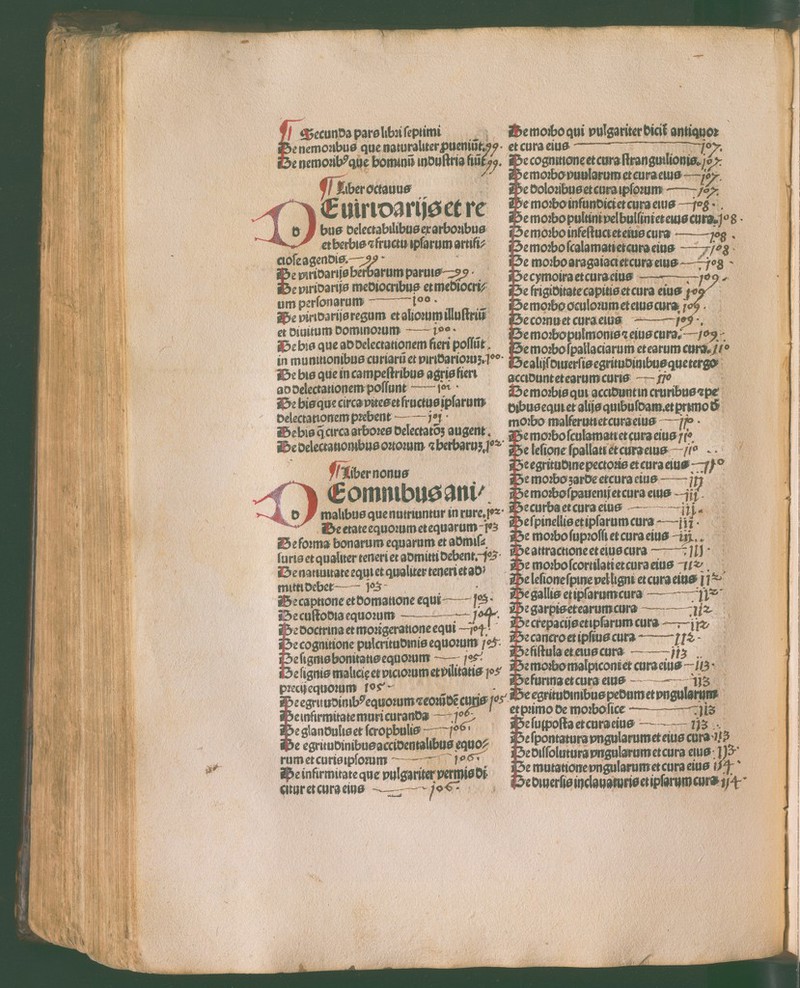 ¶ Secunda pars libri septimi
De nemoribus que naturaliter ꝓueniūt. 99.
De nemoribꝰ que hominū industria fiūt. 99.
¶ Liber octauus
D Euiridarijs et re
bus delectabilibus ex arboribus
et herbis ⁊ fructu ipsarum artifi⸗
ciose agendis. 99.
De viridarijs herbarum paruis 99.
De viridarijs mediocribus et mediocri⸗
um personarum 100.
De viridarijs regum et aliorum illustriū
et diuitum dominorum 100.
De his que ad delectationem fieri possūt.
in munitionibus curiarū et viridarioruꝫ. 100.
De his que in campestribus agris fieri
ad delectationem possunt 101.
De his que circa vites et fructus ipsarum
delectationem prebent 101.
De his q̄ circa arbores delectatōꝫ augent.
De delectationibus ortorum ⁊ herbaruꝫ. 102.
¶ Liber nonus
D Eomnibus ani⸗
malibus que nutriuntur in rure. 102.
De etate equorum et equarum 103
De forma bonarum equarum et admis⸗
suris et qualiter teneri et admitti debent. 103.
De natiuitate equi et qualiter teneri et ad⸗
mitti debet 103.
De captione et domatione equi 103.
De custodia equorum 104.
De doctrina et morigeratione equi 104.
De cognitione pulcritudinis equorum 105.
De signis bonitatis equorum 105.
De signis malicię et viciorum et vilitatis 105
precij equorum 105
De egritudinibꝰ equorum ⁊ eorūdē curis 105
De infirmitate muri curanda 106.
De glandulis et scrophulis 106.
De egritudinibus accidentalibus equo⸗
rum et curis ipsorum 106.
De infirmitate que vulgariter vermis di
citur et cura eius 106.
De morbo qui vulgariter dicit̄ antiquor
et cura eius 107.
De cognitione et cura stranguilionis. 107.
De morbo viuularum et cura eius 107.
De doloribus et cura ipsorum 107.
De morbo infundici et cura eius 108.
De morbo pultini vel bulsini et eius cura. 108.
De morbo infestuci et eius cura 108.
De morbo scalamati et cura eius 108.
De morbo aragaiaci et cura eius 108
De cymoira et cura eius 109.
De frigiditate capitis et cura eius 109
De morbo oculorum et eius cura 109.
De cornu et cura eius 109.
De morbo pulmonis ⁊ eius cura. 109.
De morbo spallaciarum et earum cura. 110
De alijs diuersis egritudinibus que tergo
accidunt et earum curis 110
De morbis qui accidunt in cruribus ⁊ pe
dibus equi et alijs quibusdam. et primo d̄
morbo malferuti et cura eius 110.
De morbo sculamati et cura eius 110.
De lesione spallati et cura eius 110
De egritudine pectoris et cura eius 110
De morbo zarde et cura eius 111
De morbo spauenij et cura eius 111.
De curba et cura eius 111.
De spinellis et ipsarum cura 111.
De morbo suprossi et cura eius 111.
De attractione et eius cura 111.
De morbo scortilati et cura eius 112.
De lesione spine vel ligni et cura eius 112
De gallis et ipsarum cura 112
De garpis et earum cura 112
De crepacijs et ipsarum cura 112
De cancro et ipsius cura 112.
De fistula et eius cura 113
De morbo malpiconi et cura eius 113.
De furina et cura eius 113
De egritudinibus pedum et vngularum
et primo de morbo sice 113
De supposta et cura eius 113.
De spontatura vngularum et eius cura 113
De dissolutura vngularum et cura eius. 113.
De mutatione vngularum et cura eius 114.
De diuersis inclauaturis et ipsarum cura 114.